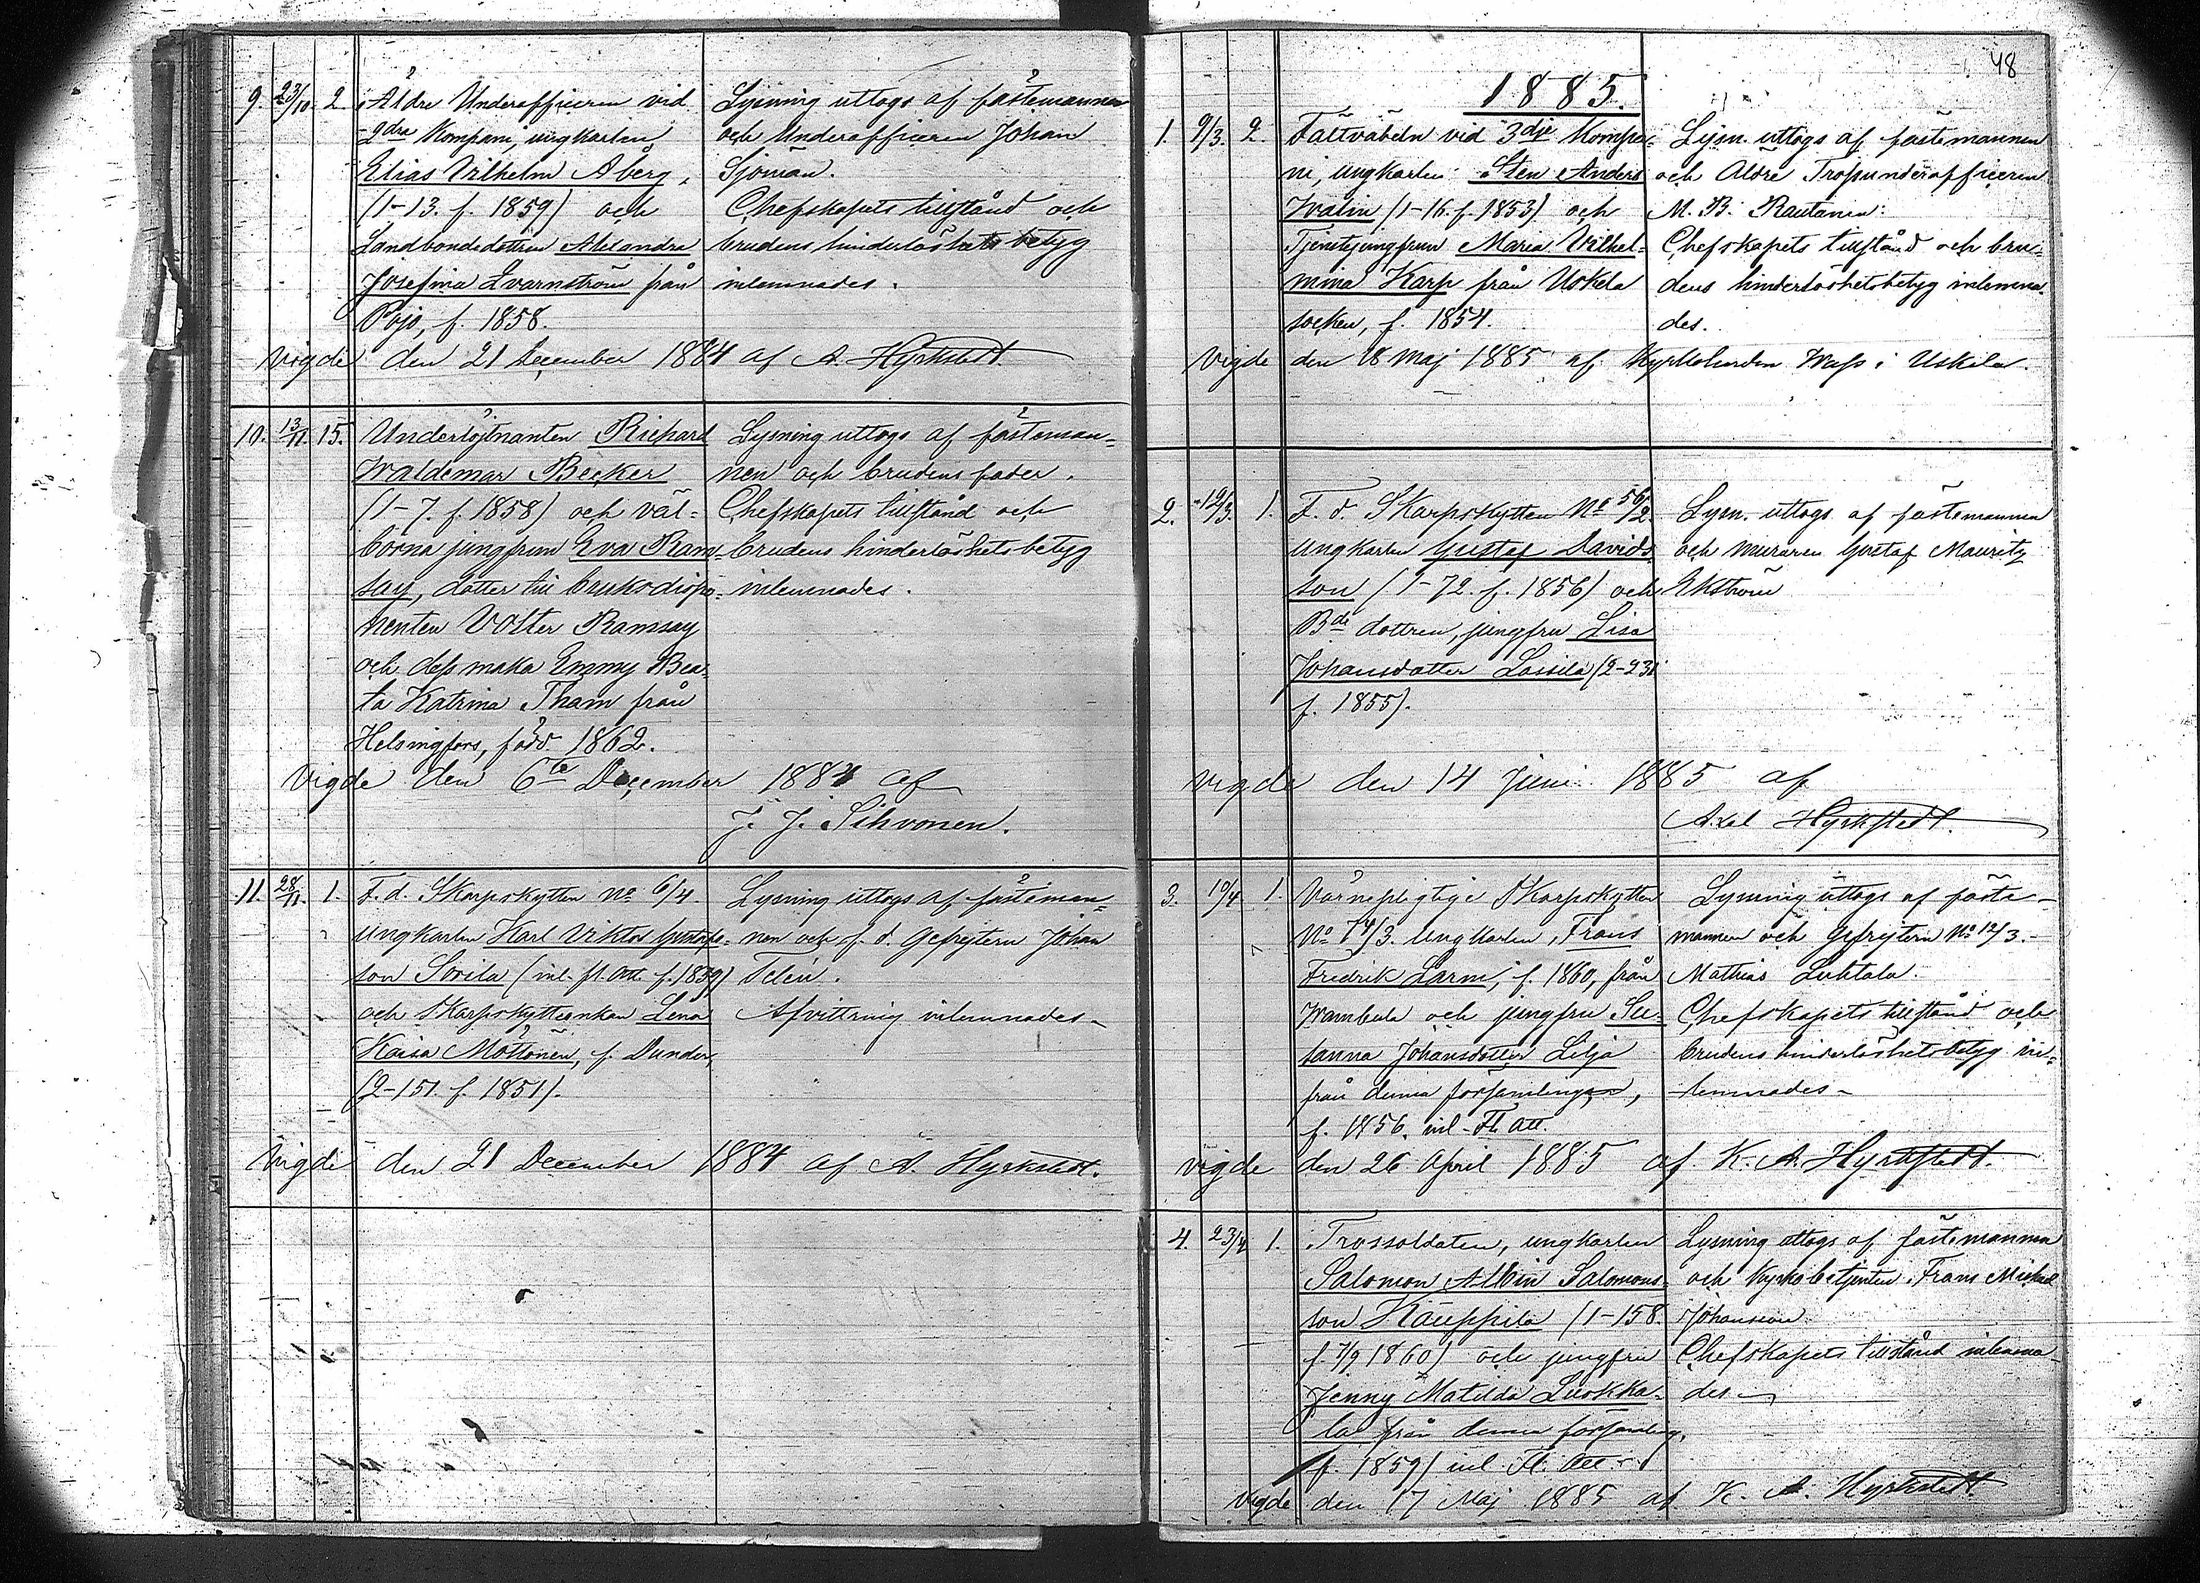 9. 23/10. 2. Äldre Underofficeren vid
2dra Kompani, ungkarlen
Elias Vilhelm Åberg,
(1-13. f. 1859) och
Landbondedottren Alexandra
Josefina Qvarnström från
Pojo, f. 1858.
Lysning uttogs af fästemannen
och Underofficeren Johan
Sjöman.
Chefskapets tillstånd och
brudens hinderlöshetsbetyg
inlemnades.
Vigde den 21 December 1884 af A. Hyrkstedt.
10. 13/11. 15. Underlöjtnanten Richard
Waldemar Becker
(1-7. f. 1858) och väl-
borna jungfrun Eva Ram-
say, dotter till bruksdispo-
nenten Volter Ramsay
och dess maka Emmy Bea-
ta Katrina Tham från
Helsingfors, född 1862.
Lysning uttogs af fästeman-
nen och brudens fader.
Chefskapets tillstånd och
brudens hinderlöshetsbetyg
inlemnades.
Vigde den 6te December 1884 af
J. J. Sihvonen.
11. 28/11. 1. F. d. Skarpskytten No 6/4.
ungkarlen Karl Viktor Gustafs-
son Sorila (inl. fl. att. f. 1859)
och Skarpskytteenkan Lena
Kaisa Möttönen, f. Dunder,
(2-151. f. 1851).
Lysning uttogs af fästeman-
nen och f. d. Gefrejtern Johan
Telén.
Afvittring inlemnades
Vigde den 21 December 1884 af A. Hyrkstedt.
48
1885.
1. 9/3. 2. Fältväbeln vid 3dje Kompa-
ni, ungkarlen Sten Anders
Walin (1-16. f. 1853) och
Tjenstejungfrun Maria Vilhel-
mina Karp från Uskela
socken, f. 1854.
Lysn. uttogs af fästemannen
och Äldre Trossunderofficeren
M. B. Rautanen.
Chefskapets tillstånd och bru-
dens hinderlöshetsbetyg inlemna-
des.
Vigde den 18 Maj 1885 af Kyrkoherden Wass i Uskela.
2. 12/3. 1. F. d. Skarpskytten No 56/2.
ungkarlen Gustaf Davids-
son (1-72. f. 1856) och
Bde dottren, jungfru Lisa
Johansdotter Lassila (2-231
f. 1855).
Lysn. uttogs af fästemannen
och muraren Gustaf Mauritz
Ekström
Vigde den 14 Juni 1885 af
Axel Hyrkstedt.
3. 10/4 1. Värnepligtige Skarpskytten
No 79/3. ungkarlen, Frans
Fredrik Larm, f. 1860, från
Wambula och jungfru Su-
sanna Johansdotter Lilja
från denna församlingen,
f. 1856. inl. Fl. att.
Lysning uttogs af fäste-
mannen och Gefrejtern No 12/3.
Mathias Luhtala.
Chefskapets tillstånd och
brudens hinderlöshetsbetyg in-
lemnades
Vigde den 26 April 1885 af K. A. Hyrkstedt.
4. 23/4 1. Trossoldaten, ungkarlen
Salomon Albin Salomons-
son Kauppila (1-158.
f. 7/9 1860) och jungfru
Jenny Matilda Luokka-
la från denna församling,
f. 1859) inl. Fl. att.
Lysning uttogs af fästemannen
och Kyrkobetjenten Frans Mickael
Johansson
Chefskapets tillstånd inlemna-
des
Vigde den 17 Maj 1885 af K. A. Hyrkstedt.